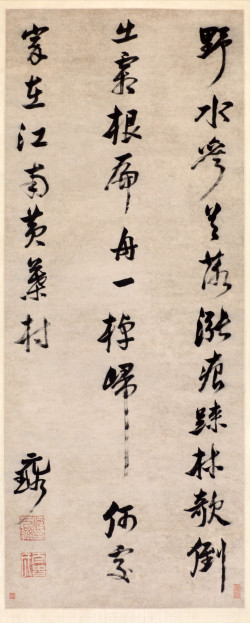 野水參差落漲痕踈林欹倒
出霜根扁舟一棹歸何處
家在江南黃葉村